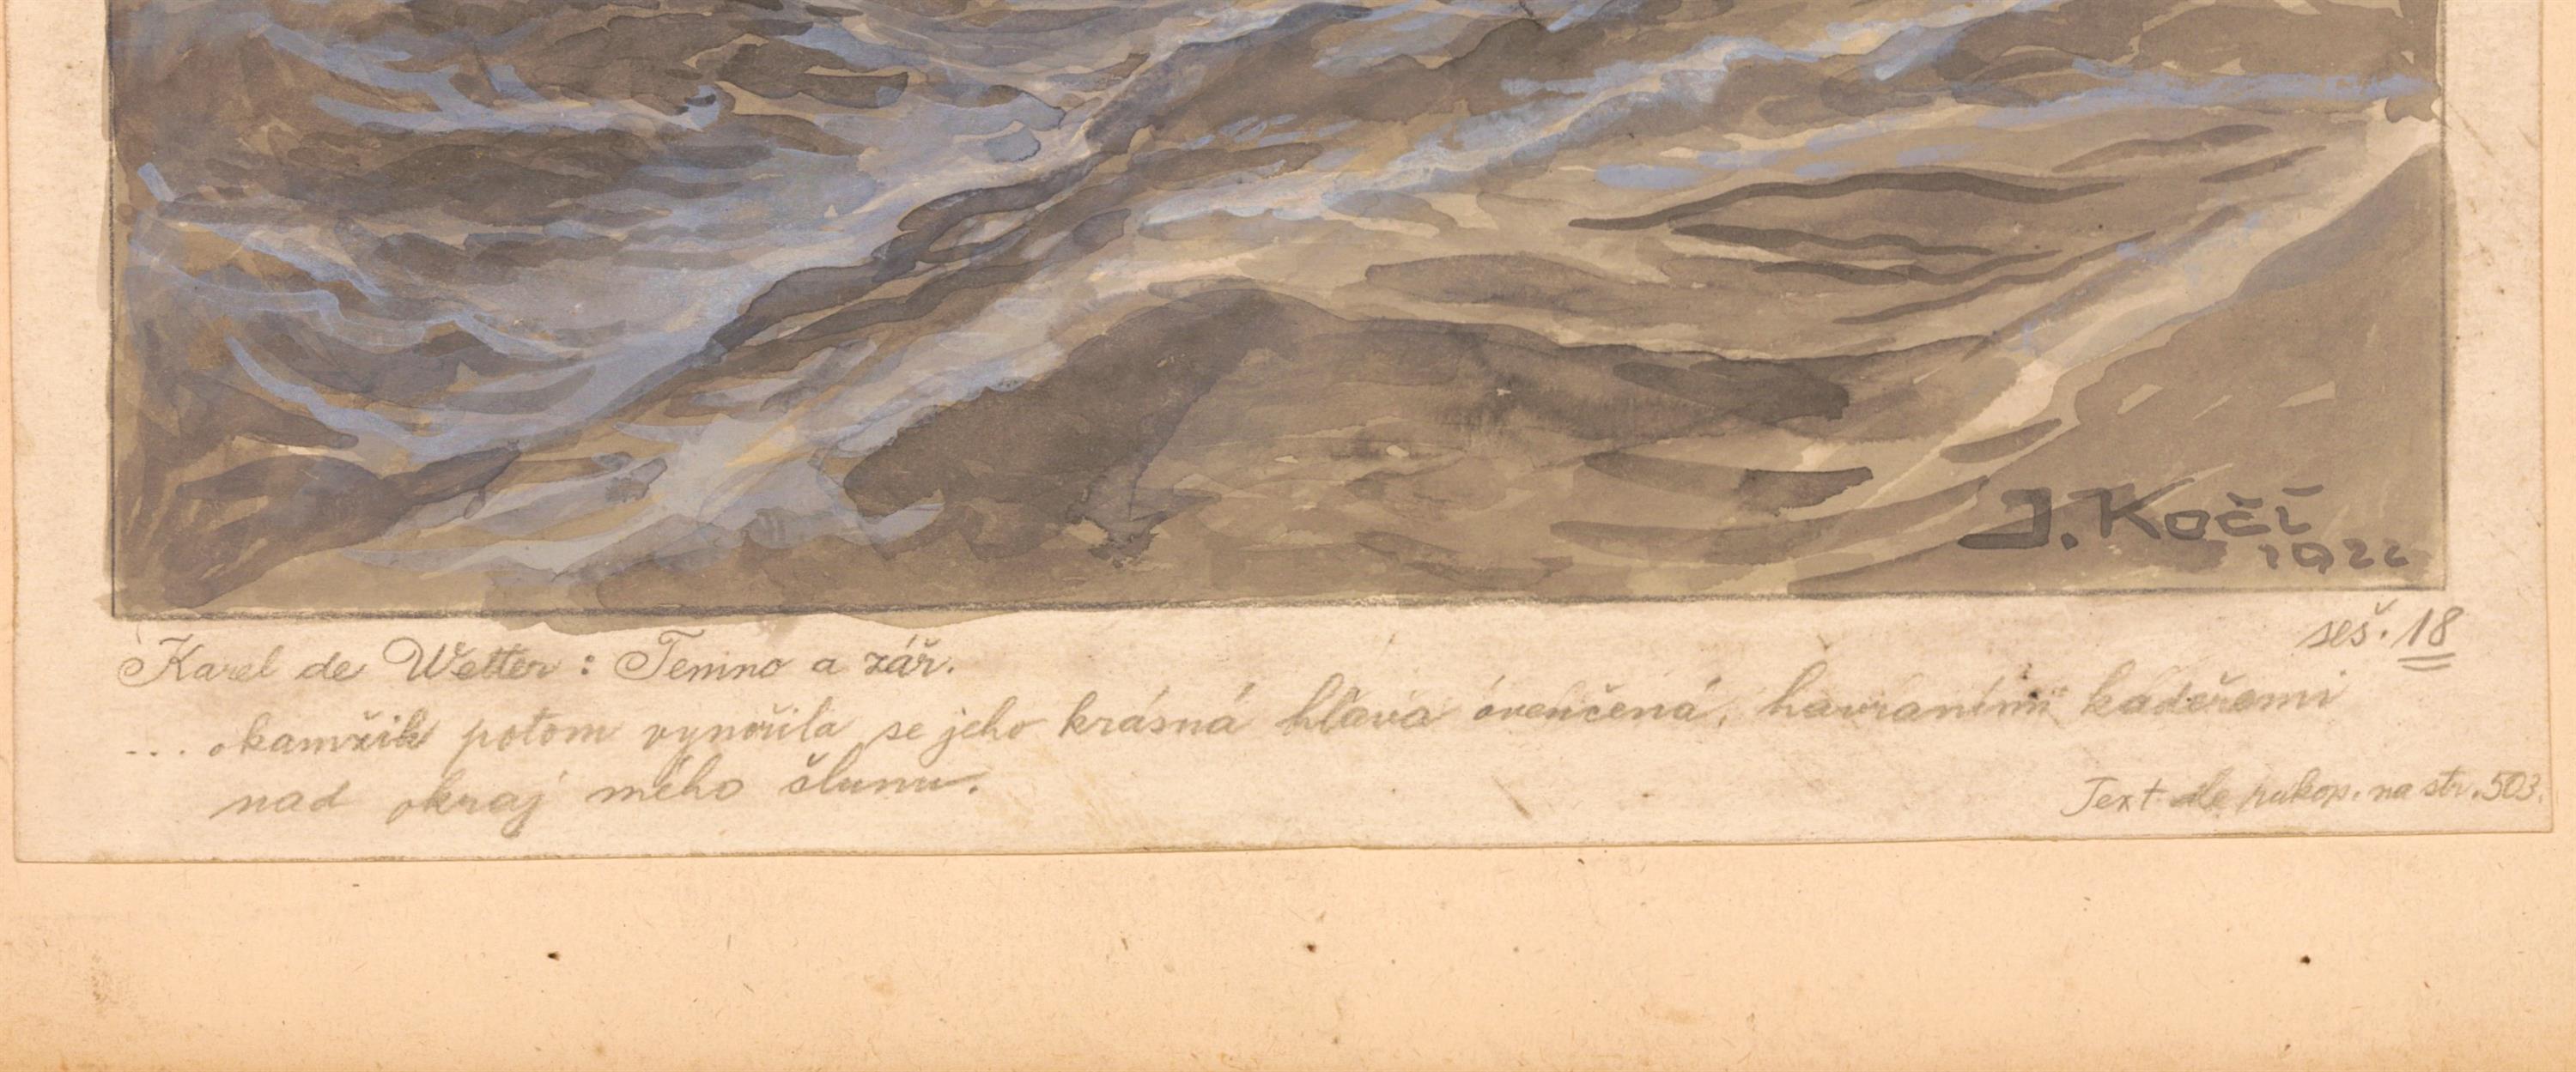 J. Kočí
1922
seš. 18
Karel de Wetter: Temno a zář.
... okamžik potom vynořila se jeho krásná hlava ověnčená, havraními kadeřemi
nad okraj mého člunu.
Text dle rukop. na str. 503.